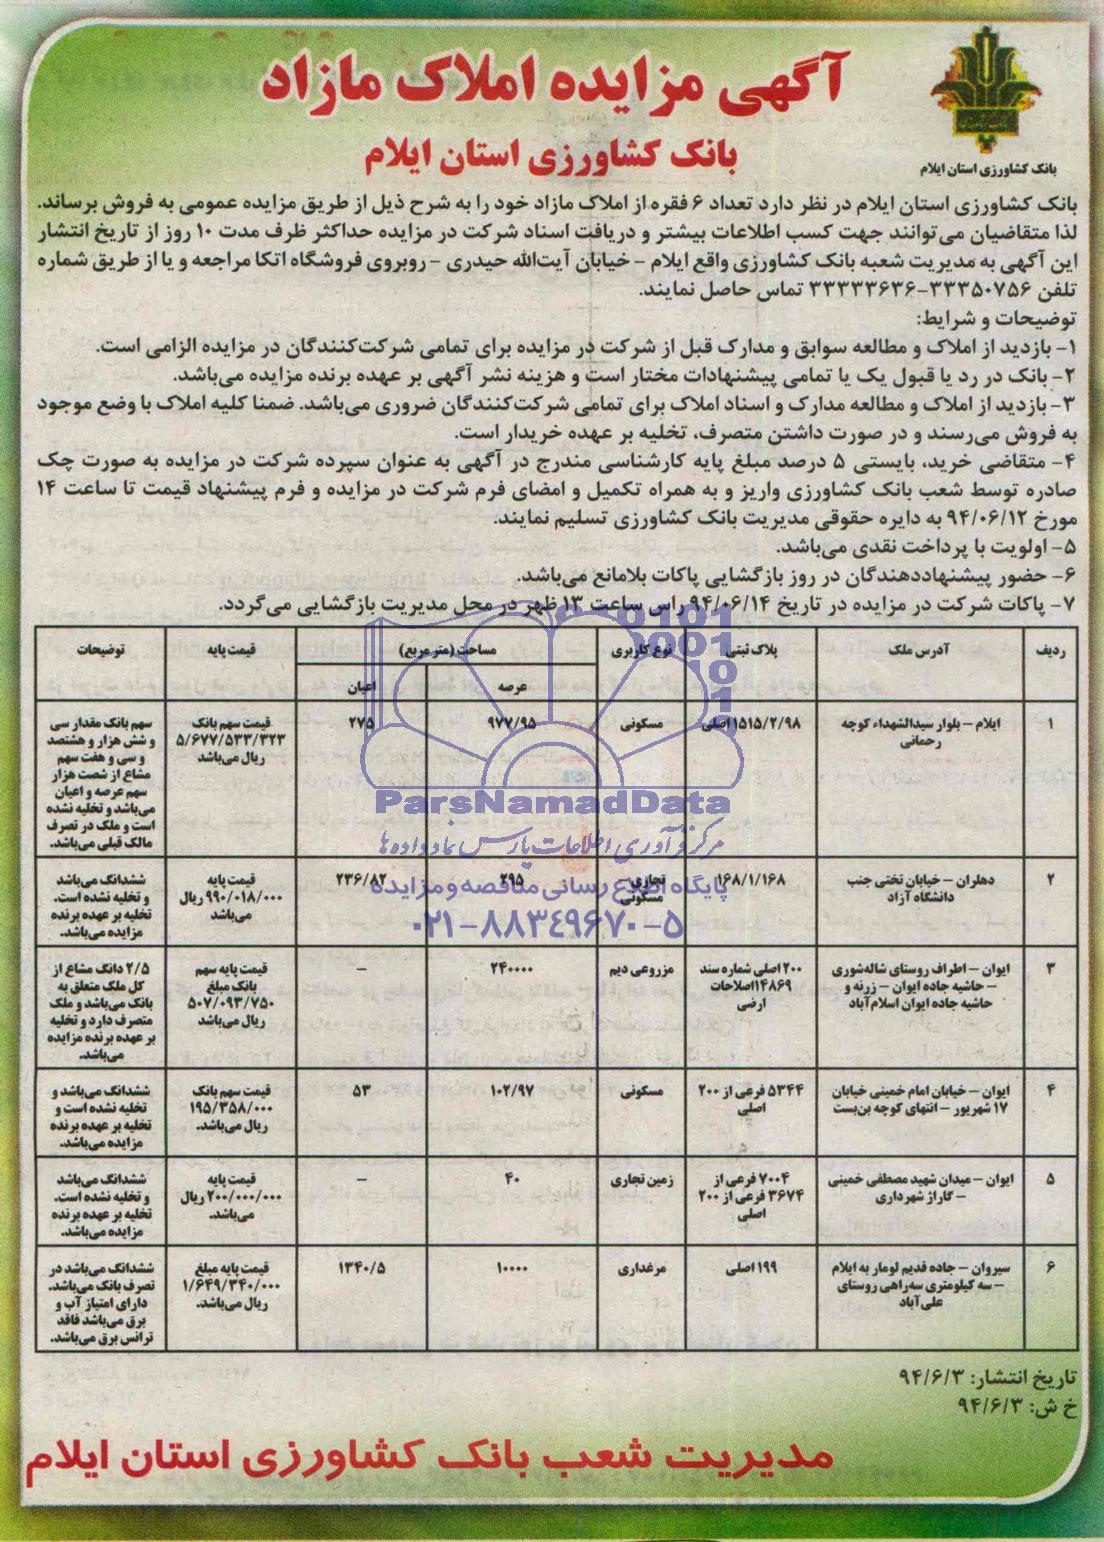 آگهی مزایده املاک مازاد
بانک کشاورزی استان ایلام
بانک کشاورزی استان ایلام
بانک کشاورزی استان ایلام در نظر دارد تعداد ۶ فقره از املاک مازاد خود را به شرح ذیل از طریق مزایده عمومی به فروش برساند.
لذا متقاضیان می‌توانند جهت کسب اطلاعات بیشتر و دریافت اسناد شرکت در مزایده حداکثر ظرف مدت ۱۰ روز از تاریخ انتشار
این آگهی به مدیریت شعبه بانک کشاورزی واقع ایلام – خیابان آیت‌الله حیدری – روبروی فروشگاه اتکا مراجعه و یا از طریق شماره
تلفن ۳۳۳۵۰۷۵۶-۳۳۳۳۳۶۳۶ تماس حاصل نمایند.
توضیحات و شرایط:
۱– بازدید از املاک و مطالعه سوابق و مدارک قبل از شرکت در مزایده برای تمامی شرکت‌کنندگان در مزایده الزامی است.
۲– بانک در رد یا قبول یک یا تمامی پیشنهادات مختار است و هزینه نشر آگهی بر عهده برنده مزایده می‌باشد.
۳– بازدید از املاک و مطالعه مدارک و اسناد املاک برای تمامی شرکت‌کنندگان ضروری می‌باشد. ضمنا کلیه املاک با وضع موجود
به فروش می‌رسند و در صورت داشتن متصرف، تخلیه بر عهده خریدار است.
۴– متقاضی خرید، بایستی ۵ درصد مبلغ پایه کارشناسی مندرج در آگهی به عنوان سپرده شرکت در مزایده به صورت چک
صادره توسط شعب بانک کشاورزی واریز و به همراه تکمیل و امضای فرم شرکت در مزایده و فرم پیشنهاد قیمت تا ساعت ۱۴
مورخ ۹۴/۰۶/۱۲ به دایره حقوقی مدیریت بانک کشاورزی تسلیم نمایند.
۵– اولویت با پرداخت نقدی می‌باشد.
۶– حضور پیشنهاددهندگان در روز بازگشایی پاکات بلامانع می‌باشد.
۷– پاکات شرکت در مزایده در تاریخ ۹۴/۰۶/۱۴ راس ساعت ۱۳ ظهر در محل مدیریت بازگشایی می‌گردد.
ردیف | آدرس ملک | پلاک ثبتی | نوع کاربری | مساحت (متر مربع) | قیمت پایه | توضیحات
عرصه | اعیان
۱ | ایلام – بلوار سیدالشهداء کوچه رحمانی | ۱۵۱۵/۲/۹۸ اصلی | مسکونی | ۹۷۷/۹۵ | ۲۷۵ | قیمت سهم بانک ۵/۶۷۷/۵۳۳/۳۲۳ ریال می‌باشد | سهم بانک مقدار سی و شش هزار و هشتصد و سی و هفت سهم مشاع از شصت هزار سهم عرصه و اعیان می‌باشد و تخلیه نشده است و ملک در تصرف مالک قبلی می‌باشد.
۲ | دهلران – خیابان تختی جنب دانشگاه آزاد | ۱۶۸/۱/۱۶۸ | تجاری – مسکونی | ۲۹۵ | ۲۳۶/۸۲ | قیمت پایه ۹۹۰/۰۱۸/۰۰۰ ریال می‌باشد | ششدانگ می‌باشد و تخلیه نشده است. تخلیه بر عهده برنده مزایده می‌باشد.
۳ | ایوان – اطراف روستای شاله‌شوری – حاشیه جاده ایوان – زرنه و حاشیه جاده ایوان اسلام‌آباد | ۲۰۰ اصلی شماره سند ۱۴۸۶۹ اصلاحات ارضی | مزروعی دیم | ۲۴۰۰۰۰ | – | قیمت پایه سهم بانک مبلغ ۵۰۷/۰۹۳/۷۵۰ ریال می‌باشد | ۲/۵ دانگ مشاع از کل ملک متعلق به بانک می‌باشد و ملک متصرف دارد و تخلیه بر عهده برنده مزایده می‌باشد.
۴ | ایوان – خیابان امام خمینی خیابان ۱۷ شهریور – انتهای کوچه بن‌بست | ۵۳۴۴ فرعی از ۲۰۰ اصلی | مسکونی | ۱۰۲/۹۷ | ۵۳ | قیمت سهم بانک ۱۹۵/۳۵۸/۰۰۰ ریال می‌باشد. | ششدانگ می‌باشد و تخلیه نشده است و تخلیه بر عهده برنده مزایده می‌باشد.
۵ | ایوان – میدان شهید مصطفی خمینی – گاراژ شهرداری | ۷۰۰۴ فرعی از ۳۶۷۴ فرعی از ۲۰۰ اصلی | زمین تجاری | ۴۰ | – | قیمت پایه ۲۰۰/۰۰۰/۰۰۰ ریال می‌باشد. | ششدانگ می‌باشد و تخلیه نشده است. تخلیه بر عهده برنده مزایده می‌باشد.
۶ | سیروان – جاده قدیم لومار به ایلام – سه کیلومتری سه‌راهی روستای علی‌آباد | ۱۹۹ اصلی | مرغداری | ۱۰۰۰۰ | ۱۳۴۰/۵ | قیمت پایه مبلغ ۱/۶۴۹/۳۴۰/۰۰۰ ریال می‌باشد. | ششدانگ می‌باشد در تصرف بانک می‌باشد. دارای امتیاز آب و برق می‌باشد فاقد ترانس برق می‌باشد.
ParsNamadData
مرکز فرآوری اطلاعات پارس نماد داده‌ها
پایگاه اطلاع رسانی مناقصه و مزایده
۰۲۱-۸۸۳۴۹۶۷۰-۵
تاریخ انتشار: ۹۴/۶/۳
خ ش: ۹۴/۶/۳
مدیریت شعب بانک کشاورزی استان ایلام